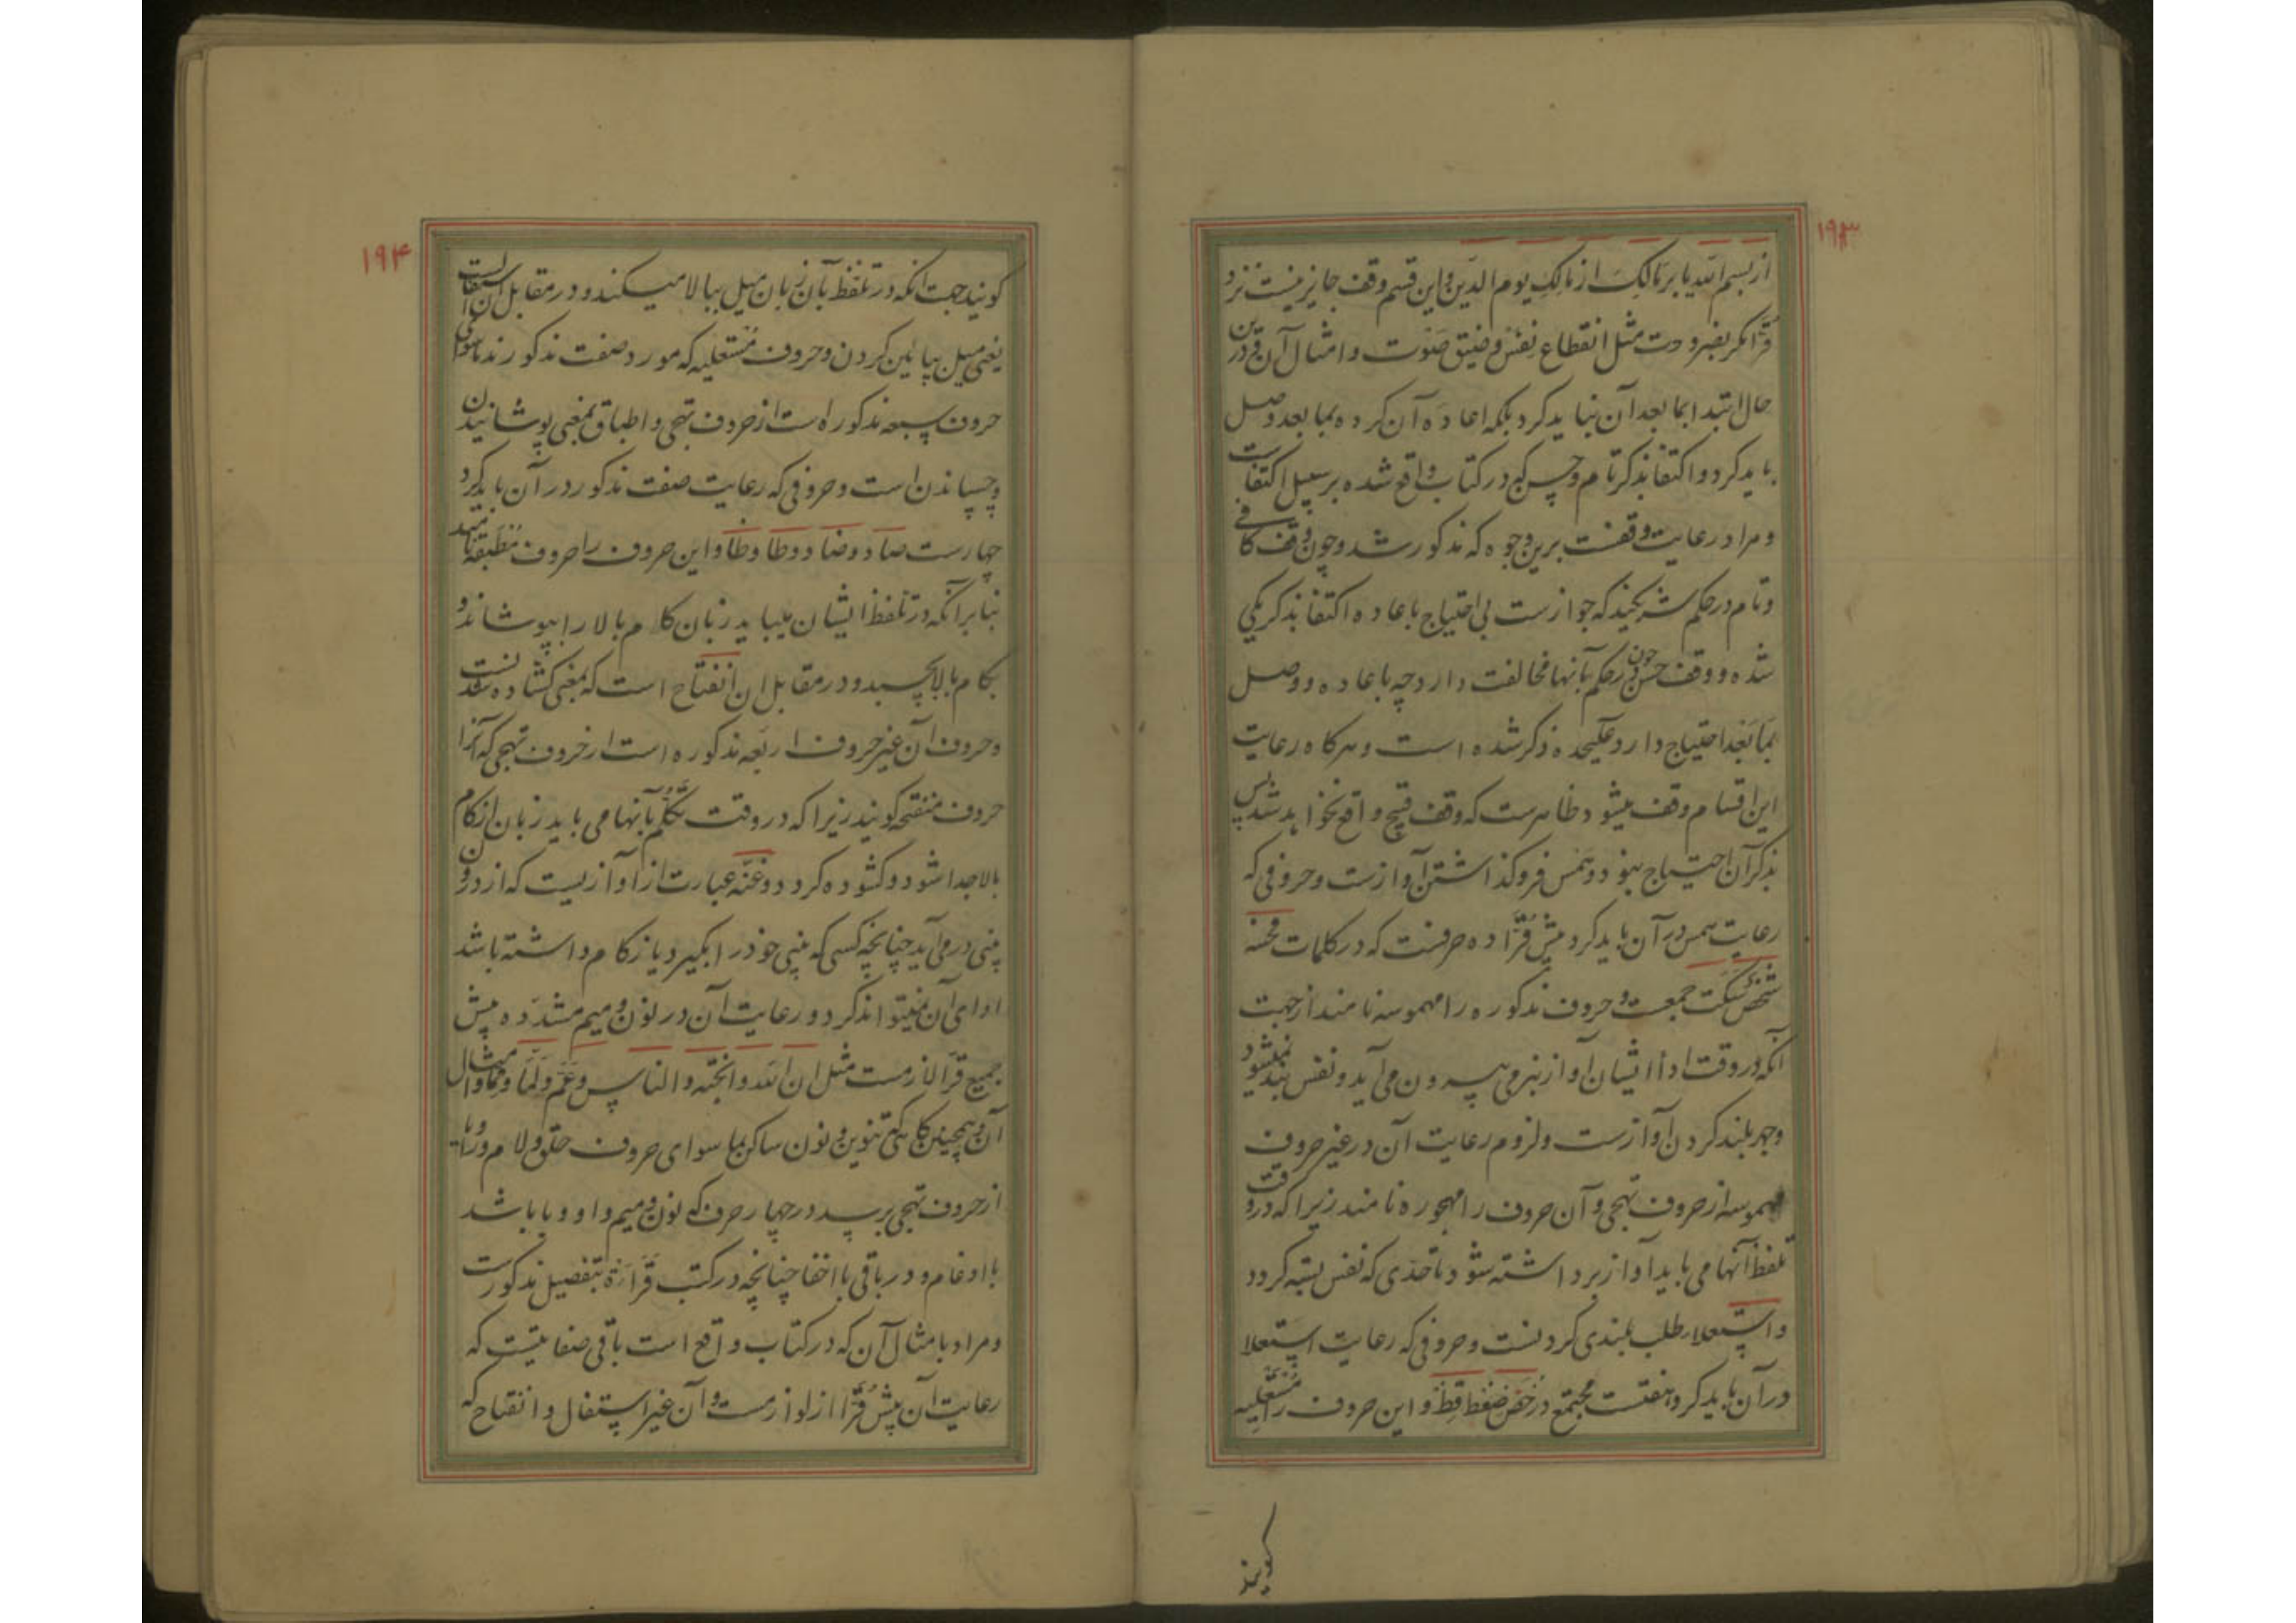 ۱۹۳
از بسم الله یا بر مالک از مالک یوم الدین و این قسم وقف جایز نیست نزد
قرا مگر بضرورت مثل انقطاع نفس و ضیق صوت و امثال آن و درین
حال ابتدا بما بعد آن نباید کرد بلکه اعاده آن کرده بما بعد وصل
باید کرد و اکتفا بذکر تام و حسن که در کتاب واقع شده بر سبیل اکتفاست
و مراد رعایت وقفست برین وجوه که مذکور شد و چون وقف کافی
و تام در حکم شریکند که جوازست بی احتیاج باعاده اکتفا بذکر یکی
شده و وقف حسن چون در حکم بآنها مخالفت دارد چه باعاده و وصل
بما بعد احتیاج دارد علیحده ذکر شده است و هرکاه رعایت
این اقسام وقف میشود ظاهرست که وقف قبیح واقع نخواهد شد پس
بذکر آن احتیاج نبود و همس فروکذاشتن آوازست و حروفی که
رعایت همس در آن باید کرد پیش قرا ده حرفست که در کلمات فحثه
شخص سکت جمعست و حروف مذکوره را مهموسه نامند از جهت
آنکه در وقت ادا ایشان آواز بنرمی بیرون می آید و نفس بند نمیشود
و جهر بلند کردن آوازست و لزوم رعایت آن در غیر حروف
مهموسه از حروف تهجی و آن حروف را مجهوره نامند زیرا که در وقت
تلفظ آنها می باید آواز برداشته شود تا حدی که نفس بسته کردد
و استعلا طلب بلندی کردنست و حروفی که رعایت استعلا
در آن باید کرد هفتست مجتمع در خص ضغط قظ و این حروف را مستعلیه
کویند
۱۹۴
کویند جهت آنکه در تلفظ بآن زبان میل ببالا میکند و در مقابل آن استفالست
یعنی میل بپایین کردن و حروف مستعلیه که مورد صفت مذکورند ماسوای
حروف سبعه مذکوره است از حروف تهجی و اطباق بمعنی پوشانیدن
و چسپاندن است و حروفی که رعایت صفت مذکور در آن باید کرد
چهارست صاد و ضاد و طا و ظا و این حروف را حروف مطبقه نامند
بنا برآنکه در تلفظ ایشان میباید زبان کام بالا را بپوشاند و
بکام بالا بچسبد و در مقابل آن انفتاح است که بمعنی کشاده شدنست
و حروف آن غیر حروف اربعه مذکوره است از حروف تهجی که آنرا
حروف منفتحه کویند زیرا که در وقت تکلم بآنها می باید زبان از کام
بالا جدا شود و کشوده کردد و غنه عبارت از آوازیست که از درون
بینی در می آید چنانچه کسی که بینی خود را بگیرد یا زکام داشته باشد
ادای آن نمیتواند کرد و رعایت آن در نون و میم مشدده پیش
جمیع قرا لازمست مثل ان الله و الجنه و الناس و عم و لما و مما و امثال
آن و همچنین کلمه که تنوین و نون ساکن بما سوای حروف حلق و لام و را
از حروف تهجی برسد در چهار حرف که نون و میم و واو و یا باشد
با ادغام و در باقی با اخفا چنانچه در کتب قراءة بتفصیل مذکورست
و مراد بامثال آن که در کتاب واقع است باقی صفاتیست که
رعایت آن پیش قرا از لوازمست و آن غیر استفال و انفتاح که